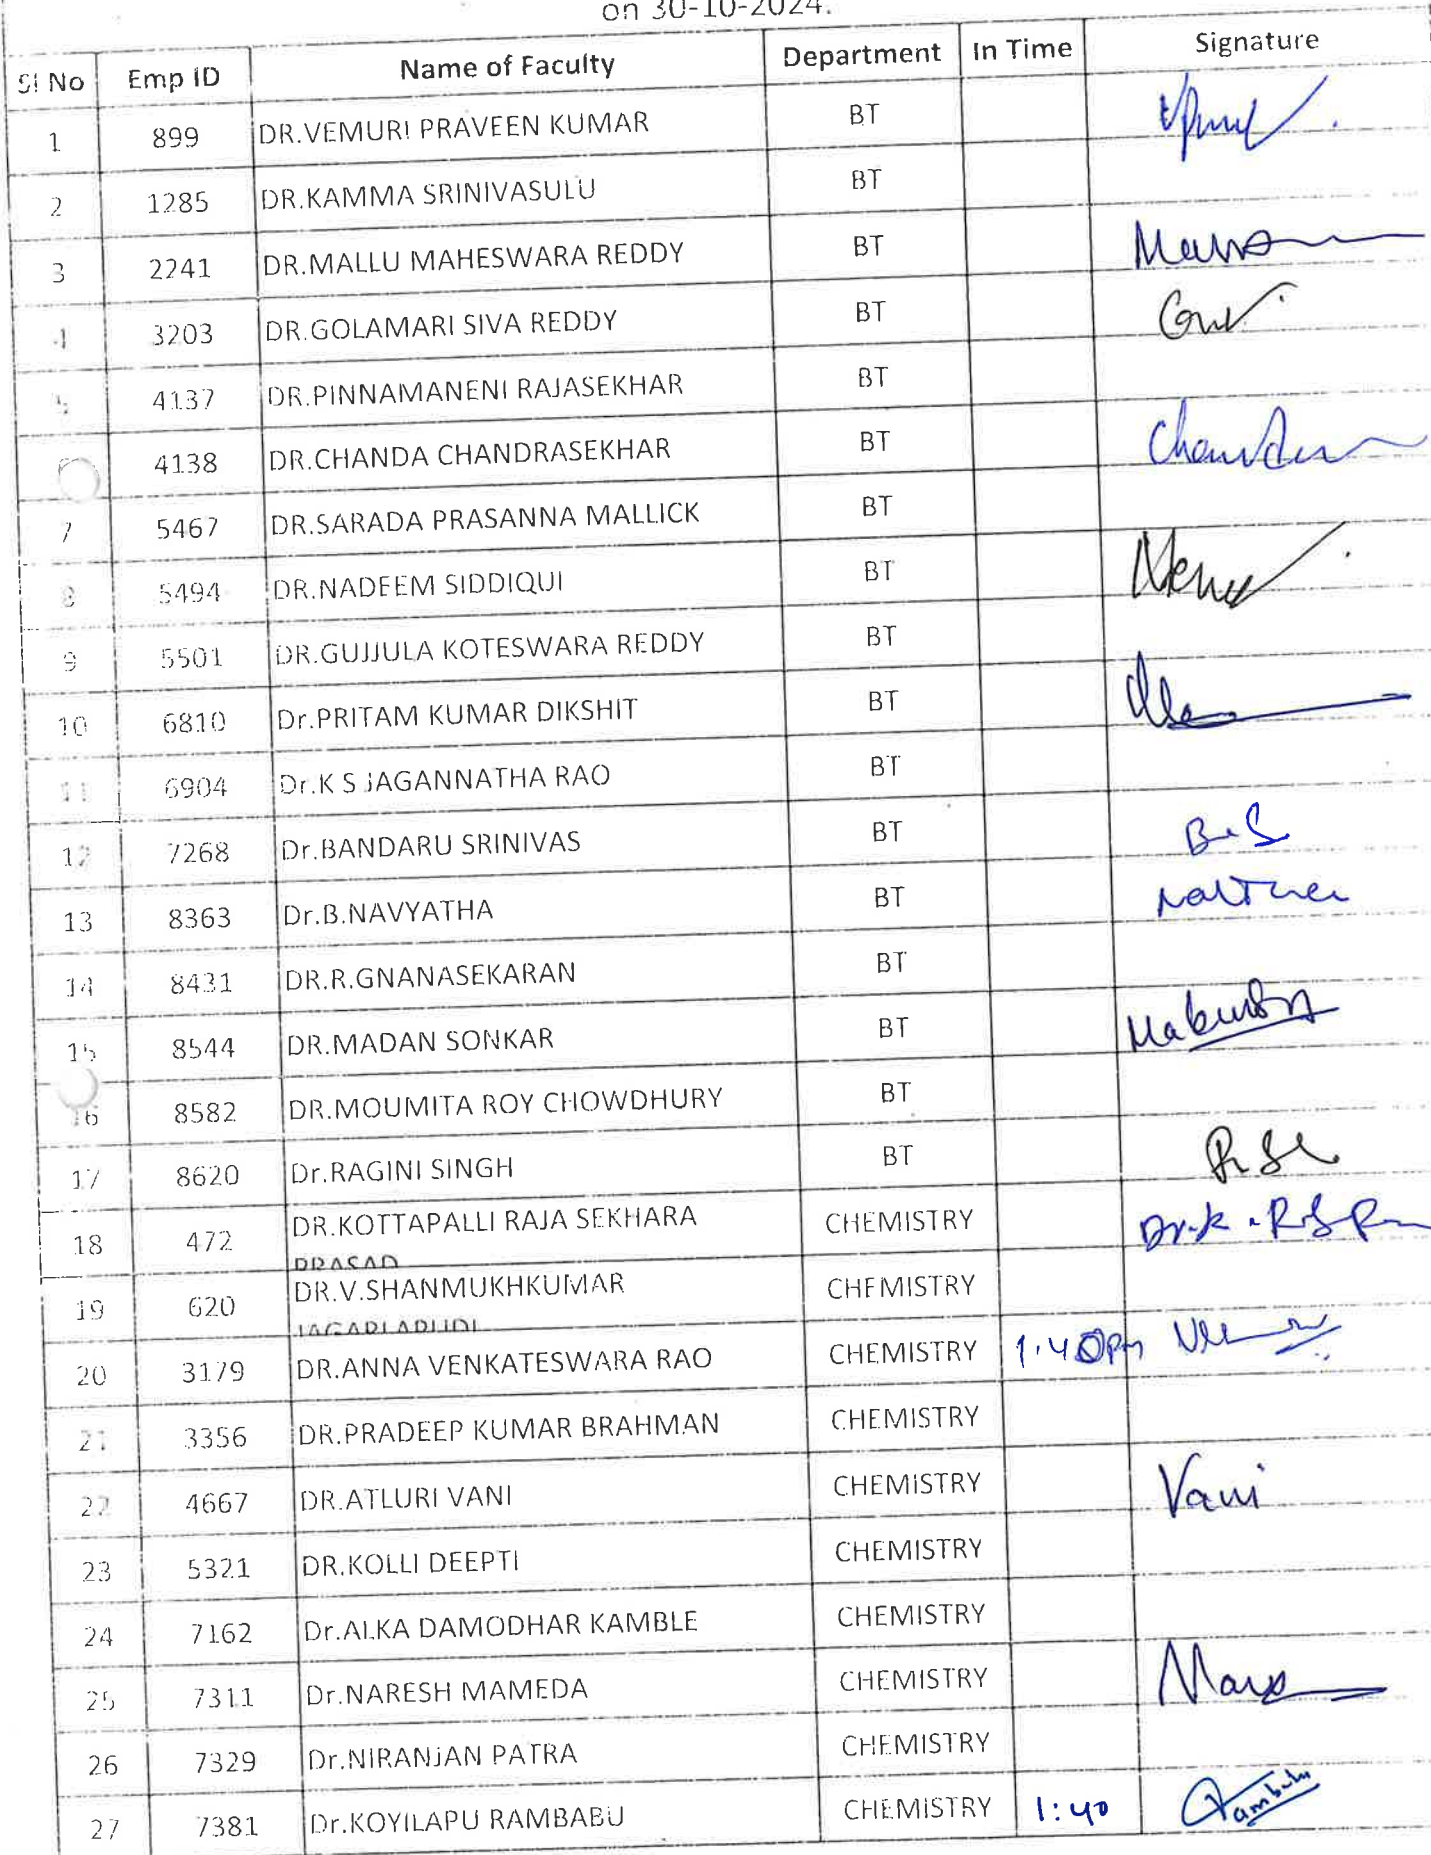 on 30-10-2024.
Sl No Emp ID Name of Faculty Department In Time Signature
1 899 DR.VEMURI PRAVEEN KUMAR BT
2 1285 DR.KAMMA SRINIVASULU BT
3 2241 DR.MALLU MAHESWARA REDDY BT
4 3203 DR.GOLAMARI SIVA REDDY BT
4137 DR.PINNAMANENI RAJASEKHAR BT
4138 DR.CHANDA CHANDRASEKHAR BT
7 5467 DR.SARADA PRASANNA MALLICK BT
8 5494 DR.NADEEM SIDDIQUI BT
9 5501 DR.GUJJULA KOTESWARA REDDY BT
10 6810 Dr.PRITAM KUMAR DIKSHIT BT
11 6904 Dr.K S JAGANNATHA RAO BT
12 7268 Dr.BANDARU SRINIVAS BT B.S
13 8363 Dr.B.NAVYATHA BT
14 8431 DR.R.GNANASEKARAN BT
15 8544 DR.MADAN SONKAR BT
16 8582 DR.MOUMITA ROY CHOWDHURY BT
17 8620 Dr.RAGINI SINGH BT
18 472 DR.KOTTAPALLI RAJA SEKHARA CHEMISTRY
PRASAD
19 620 DR.V.SHANMUKHKUMAR CHEMISTRY
JAGARLAPUDI
20 3179 DR.ANNA VENKATESWARA RAO CHEMISTRY 1:40pm
21 3356 DR.PRADEEP KUMAR BRAHMAN CHEMISTRY
22 4667 DR.ATLURI VANI CHEMISTRY Vani
23 5321 DR.KOLLI DEEPTI CHEMISTRY
24 7162 Dr.ALKA DAMODHAR KAMBLE CHEMISTRY
25 7311 Dr.NARESH MAMEDA CHEMISTRY
26 7329 Dr.NIRANJAN PATRA CHEMISTRY
27 7381 Dr.KOYILAPU RAMBABU CHEMISTRY 1:40 Rambabu